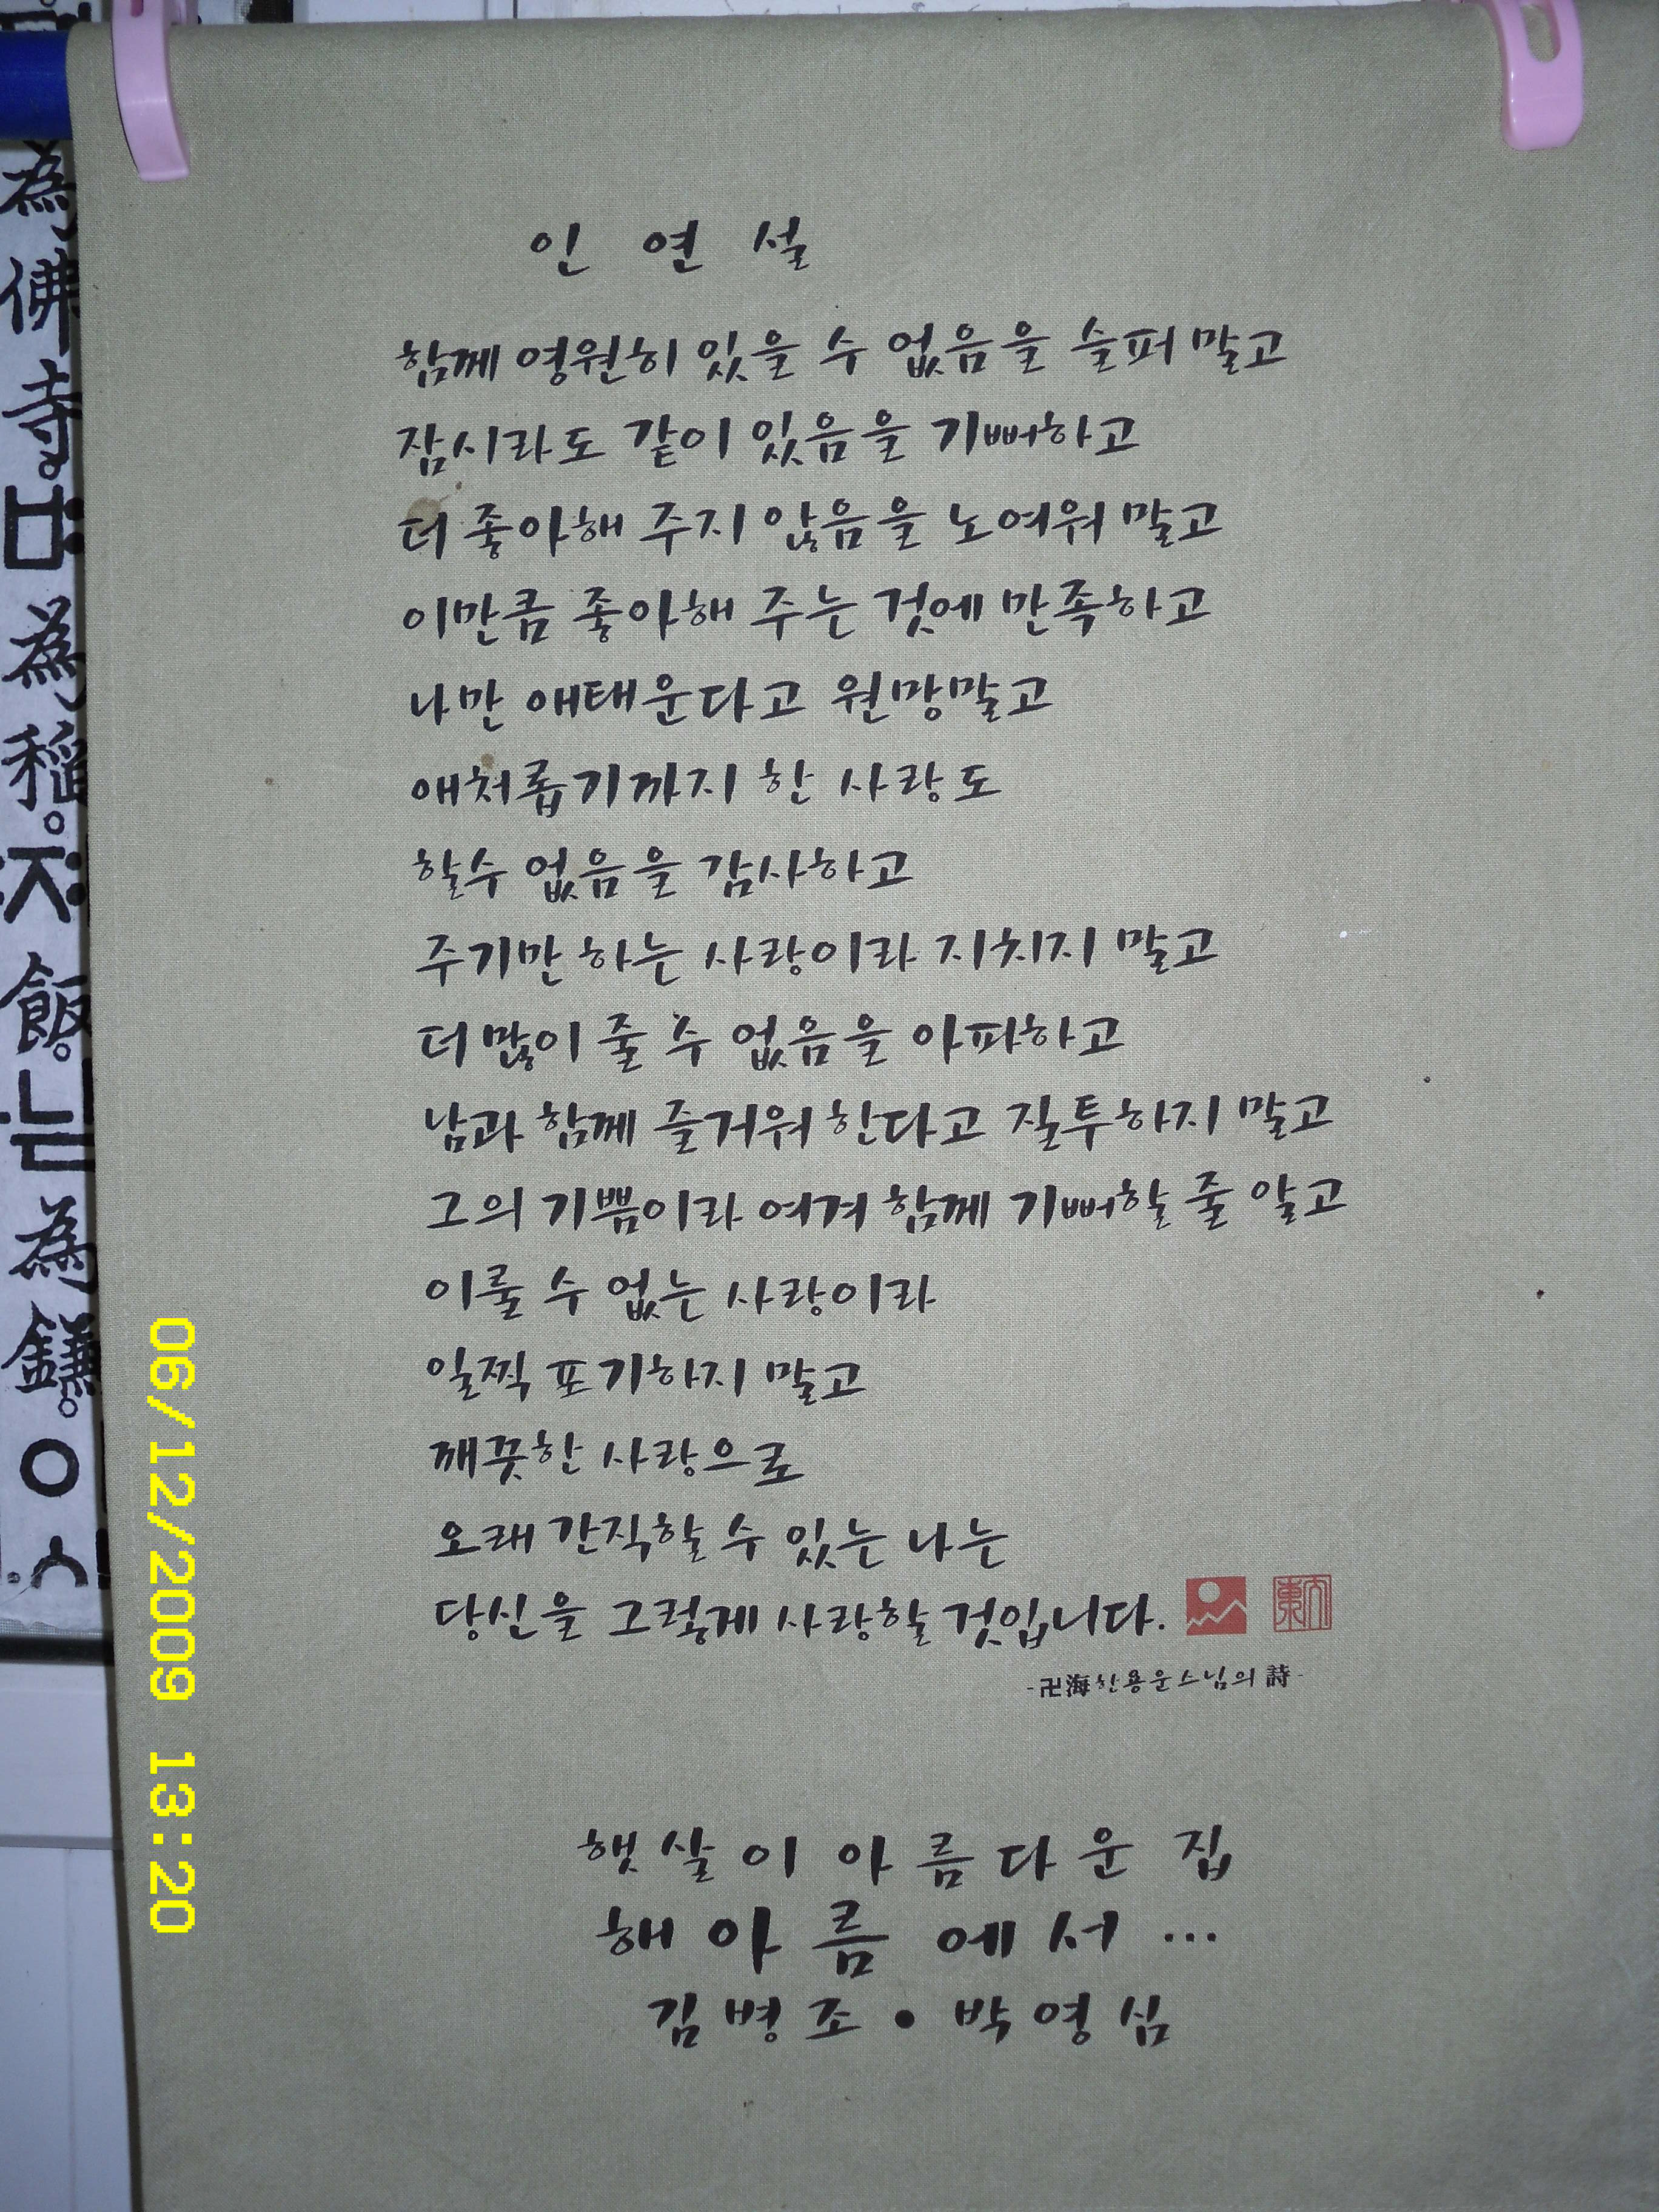 인 연 설
함께 영원히 있을 수 없음을 슬퍼 말고
잠시라도 같이 있음을 기뻐하고
더 좋아해 주지 않음을 노여워 말고
이만큼 좋아해 주는 것에 만족하고
나만 애태운다고 원망말고
애처롭기까지 한 사랑도
할수 없음을 감사하고
주기만 하는 사랑이라 지치지 말고
더 많이 줄 수 없음을 아파하고
남과 함께 즐거워 한다고 질투하지 말고
그의 기쁨이라 여겨 함께 기뻐할 줄 알고
이룰 수 없는 사랑이라
일찍 포기하지 말고
깨끗한 사랑으로
오래 간직할 수 있는 나는
당신을 그렇게 사랑할 것입니다.
-卍海한용운스님의 詩-
햇살이 아름다운 집
해아름에서...
김병조 • 박영심
為
佛
寺
為
稻
飯
는
為
鎌
06/12/2009 13:20